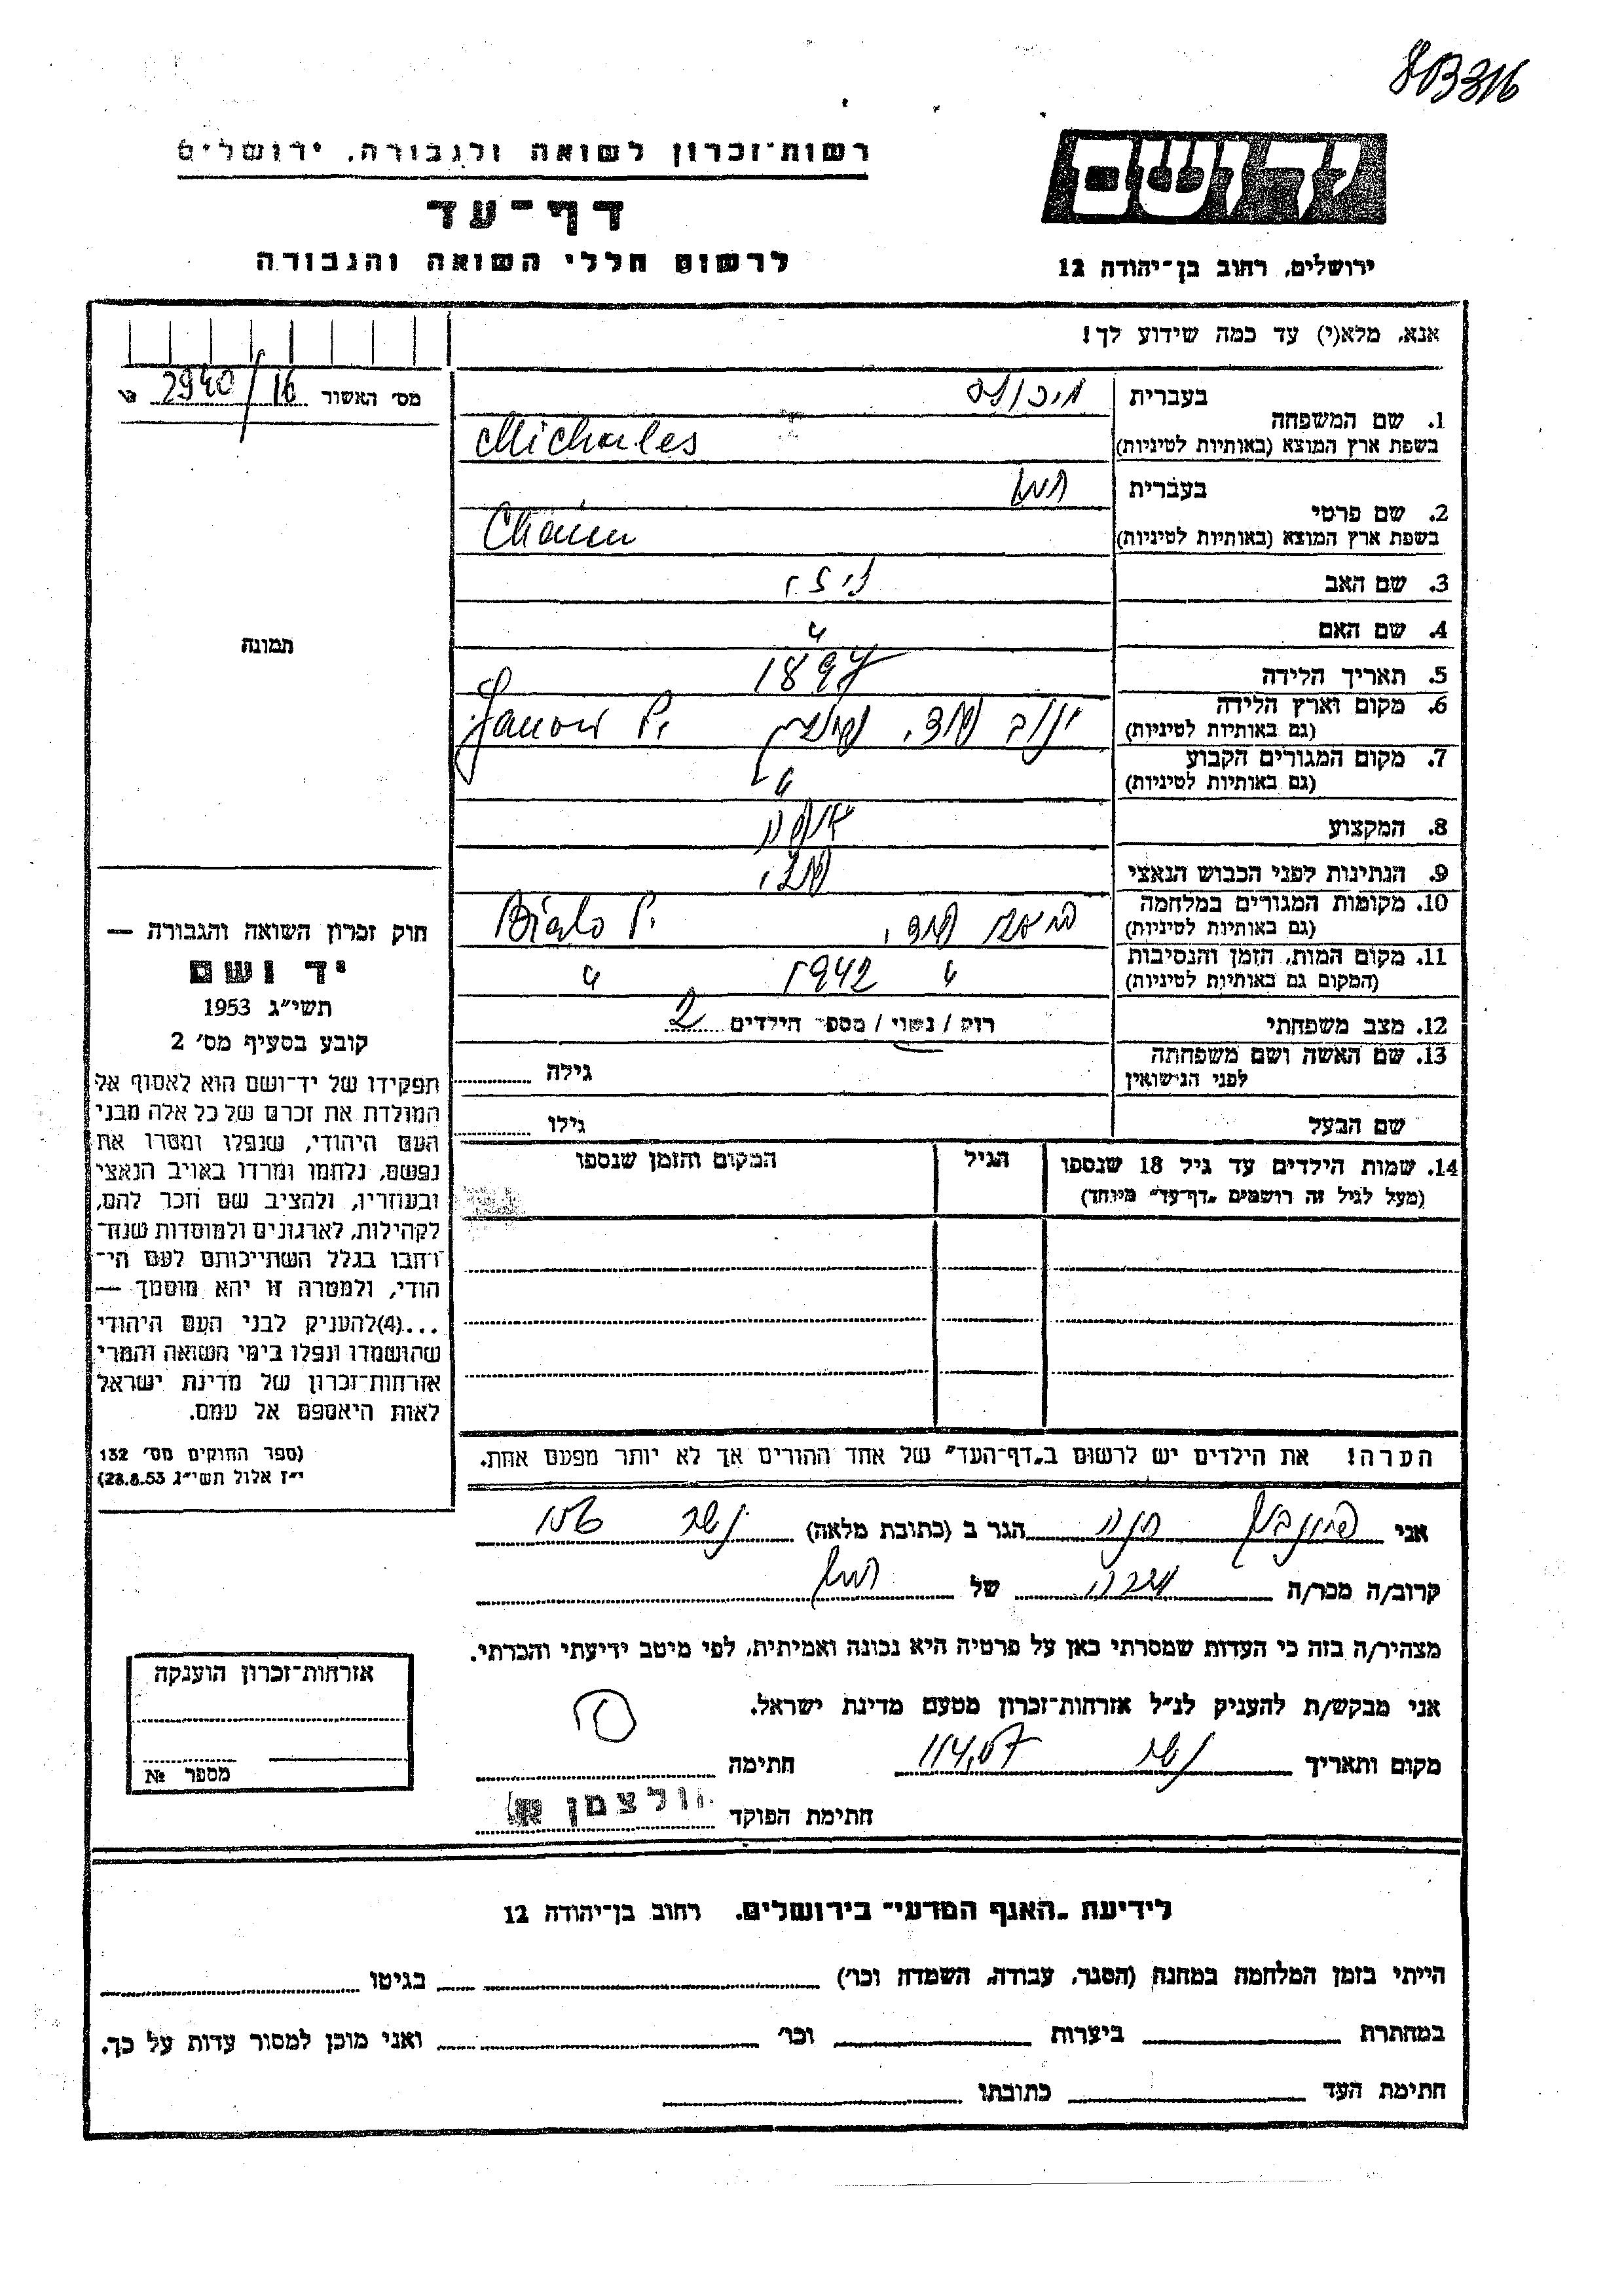 8B316
ידושם
ירושלים, רחוב בן־יהודה 12
רשות־זכרון לשואה ולגבורה, ירושלים
דף־עד
לרשום חללי השואה והגבורה
אנא, מלא(י) עד כמה שידוע לך!
מס׳ האשור 2940/16
1. שם המשפחה
בעברית
בשפת ארץ המוצא (באותיות לטיניות) Michales
2. שם פרטי
בעברית חיים
בשפת ארץ המוצא (באותיות לטיניות) Chaim
3. שם האב
4. שם האם
5. תאריך הלידה 1897
6. מקום וארץ הלידה
(גם באותיות לטיניות) ינוב פודל. פולין Janow P.
7. מקום המגורים הקבוע
(גם באותיות לטיניות) "
8. המקצוע
9. הנתינות לפני הכבוש הנאצי
10. מקומות המגורים במלחמה
(גם באותיות לטיניות) Biala P.
11. מקום המות, הזמן והנסיבות
(המקום גם באותיות לטיניות) " 1942 "
12. מצב משפחתי רוק / נשוי / מספר הילדים 2
13. שם האשה ושם משפחתה
לפני הנישואין גילה
שם הבעל גילו
14. שמות הילדים עד גיל 18 שנספו
(מעל לגיל זה רושמים „דף־עד” מיוחד)
הגיל
המקום והזמן שנספו
תמונה
חוק זכרון השואה והגבורה —
יד ושם
תשי״ג 1953
קובע בסעיף מס׳ 2
תפקידו של יד־ושם הוא לאסוף אל
המולדת את זכרם של כל אלה מבני
העם היהודי, שנפלו ומסרו את
נפשם, נלחמו ומרדו באויב הנאצי
ובעוזריו, ולהציב שם וזכר להם,
לקהילות, לארגונים ולמוסדות שנח־
רחבו בגלל השתייכותם לעם הי־
הודי, ולמטרה זו יהא מוסמך —
...(4)להעניק לבני העם היהודי
שהושמדו ונפלו בימי השואה והמרי
אזרחות־זכרון של מדינת ישראל
לאות היאספם אל עמם.
(ספר החוקים מס׳ 132
י״ז אלול תשי״ג 28.8.53)
הערה! את הילדים יש לרשום ב„דף־העד” של אחד ההורים אך לא יותר מפעם אחת.
אני חנה הגר ב (כתובת מלאה)
קרוב/ה מכר/ה של חיים
מצהיר/ה בזה כי העדות שמסרתי כאן על פרטיה היא נכונה ואמיתית, לפי מיטב ידיעתי והכרתי.
אני מבקש/ת להעניק לנ״ל אזרחות־זכרון מטעם מדינת ישראל.
מקום ותאריך חתימה
חתימת הפוקד
אזרחות־זכרון הוענקה
מספר №
לידיעת „האגף המדעי” בירושלים, רחוב בן־יהודה 12
הייתי בזמן המלחמה במחנה (הסגר, עבודה, השמדה וכו׳) בגיטו
במחתרת ביערות וכו׳ ואני מוכן למסור עדות על כך.
חתימת העד כתובתו